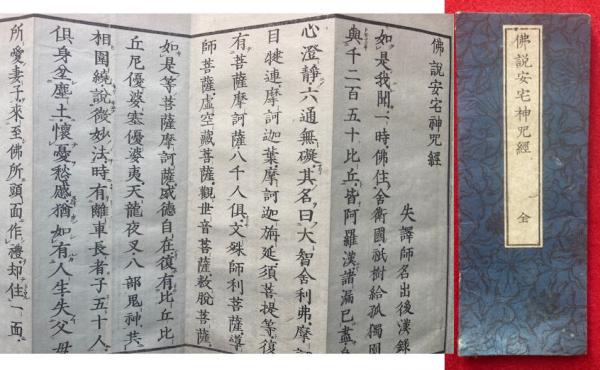 佛說安宅神咒經
失譯師名出後漢錄
如是我聞一時佛住舍衛國祇樹給孤獨園
與千二百五十比丘皆阿羅漢諸漏已盡
心澄靜六通無礙其名曰大智舍利弗摩訶
目犍連摩訶迦葉摩訶迦旃延須菩提等復
有菩薩摩訶薩八千人俱文殊師利菩薩導
師菩薩虛空藏菩薩觀世音菩薩救脫菩薩
如是等菩薩摩訶薩威德自在復有比丘比
丘尼優婆塞優婆夷天龍夜叉八部鬼神共
相圍繞說微妙法時有離車長者子五十人
俱身坌塵土懷憂愁慼猶如有人生失父母
所愛妻子來至佛所頭面作禮却住一面
佛說安宅神咒經 全